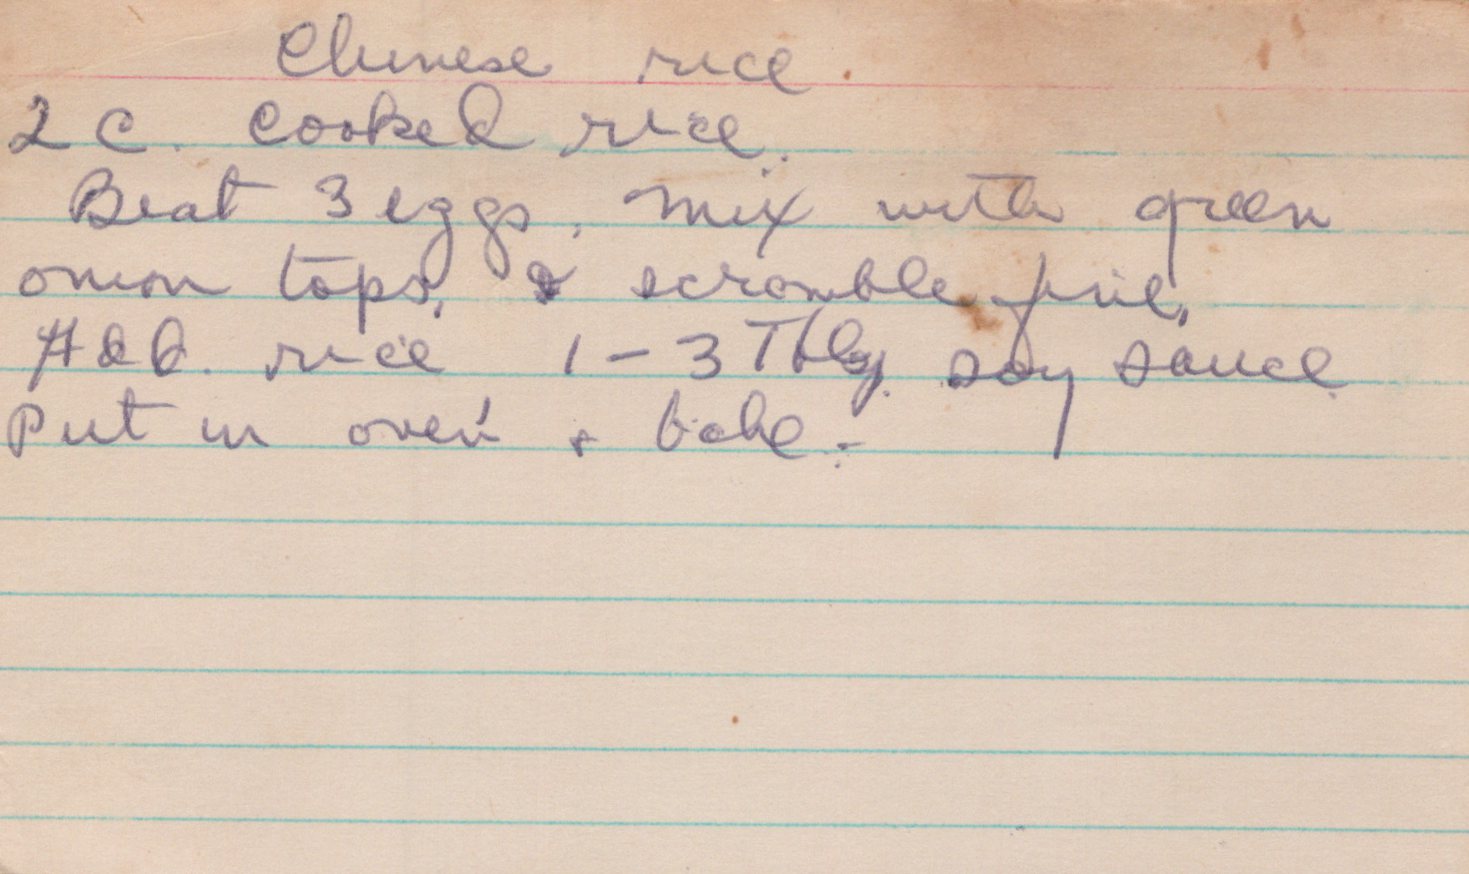 Chinese rice.
2 c. cooked rice.
Beat 3 eggs. Mix with green
onion tops, & scramble fine.
Add. rice 1-3 Tbls. soy sauce
Put in oven & bake.